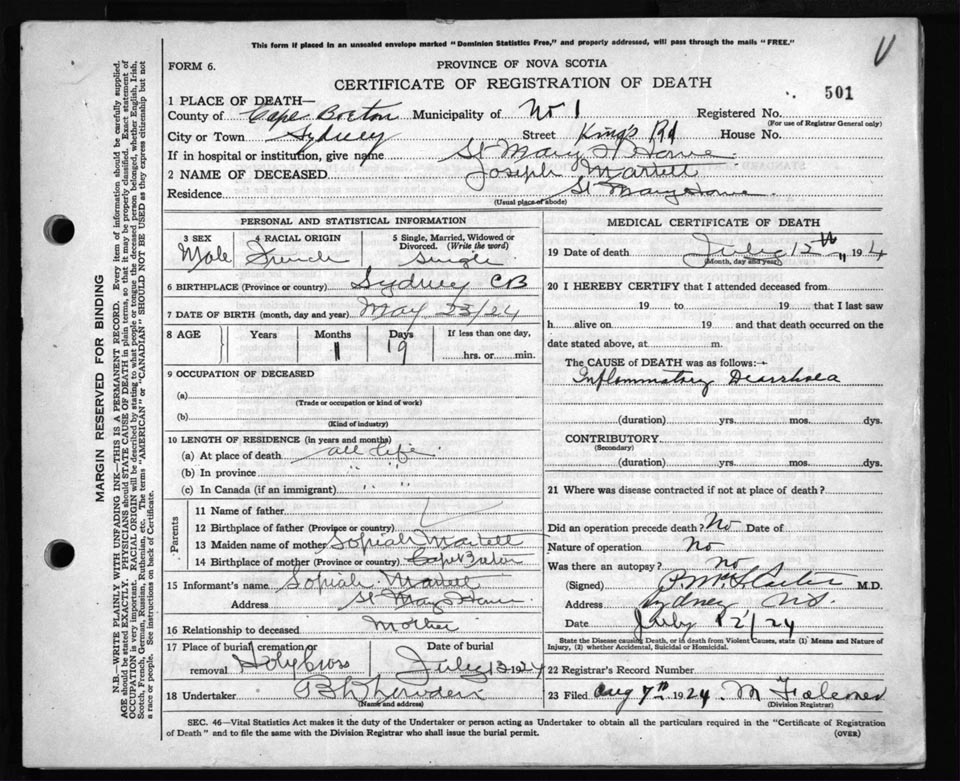 This form if placed in an unsealed envelope marked "Dominion Statistics Free," and properly addressed, will pass through the mails "FREE."
FORM 6.
PROVINCE OF NOVA SCOTIA
CERTIFICATE OF REGISTRATION OF DEATH
501
1 PLACE OF DEATH—
County of Cape Breton Municipality of No 1 Registered No.
(For use of Registrar General only)
City or Town Sydney Street King's Rd House No.
If in hospital or institution, give name St Mary's Home
2 NAME OF DECEASED Joseph Martell
Residence St Mary Home
(Usual place of abode)
PERSONAL AND STATISTICAL INFORMATION
3 SEX 4 RACIAL ORIGIN 5 Single, Married, Widowed or Divorced. (Write the word)
Male French Single
6 BIRTHPLACE (Province or country) Sydney CB
7 DATE OF BIRTH (month, day and year) May 23/24
8 AGE Years Months Days If less than one day,
1 19 hrs. or min.
9 OCCUPATION OF DECEASED
(a)
(Trade or occupation or kind of work)
(b)
(Kind of industry)
10 LENGTH OF RESIDENCE (in years and months)
(a) At place of death all life
(b) In province " "
(c) In Canada (if an immigrant) " "
Parents
11 Name of father
12 Birthplace of father (Province or country)
13 Maiden name of mother Sopiah Martell
14 Birthplace of mother (Province or country) Cape Breton
15 Informant's name Sopiah Martell
Address St Mary Home
16 Relationship to deceased Mother
17 Place of burial, cremation or removal Date of burial
Holy Cross July 13 1924
18 Undertaker
(Name and address)
MEDICAL CERTIFICATE OF DEATH
19 Date of death July 12th 1924
(Month, day and year)
20 I HEREBY CERTIFY that I attended deceased from
19 to 19 that I last saw
h alive on 19 and that death occurred on the
date stated above, at m.
The CAUSE of DEATH was as follows:—
Inflammatory Diarrhoea
(duration) yrs. mos. dys.
CONTRIBUTORY
(Secondary)
(duration) yrs. mos. dys.
21 Where was disease contracted if not at place of death?
Did an operation precede death? No Date of
Nature of operation No
Was there an autopsy? no
(Signed) M.D.
Address Sydney NS
Date July 12/24
State the Disease causing Death, or in death from Violent Causes, state (1) Means and Nature of
Injury, (2) whether Accidental, Suicidal or Homicidal.
22 Registrar's Record Number
23 Filed Aug 7th 1924 M Falconer
(Division Registrar)
SEC. 46—Vital Statistics Act makes it the duty of the Undertaker or person acting as Undertaker to obtain all the particulars required in the "Certificate of Registration
of Death" and to file the same with the Division Registrar who shall issue the burial permit.
(OVER)
MARGIN RESERVED FOR BINDING
N.B.—WRITE PLAINLY WITH UNFADING INK—THIS IS A PERMANENT RECORD. Every item of information should be carefully supplied.
AGE should be stated EXACTLY. PHYSICIANS should STATE CAUSE OF DEATH in plain terms, so that it may be properly classified. Exact statement of
OCCUPATION is very important. RACIAL ORIGIN will be described by stating to what people or tongue the deceased person belonged, whether English, Irish,
Scotch, French, German, Russian, Ruthenian, etc. The terms "AMERICAN" or "CANADIAN" SHOULD NOT BE USED as they express citizenship but not
a race or people. See instructions on back of Certificate.